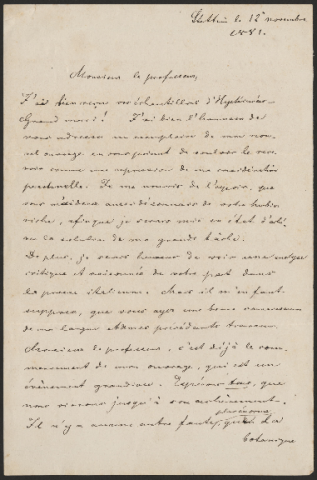 Stettin le 12 novembre
1881.
Monsieur le professeur,
J'ai bien reçu vos échantillons d'Hystérinées
Grand merci! J'ai bien l'honneur de
vous adresser un exemplaire de mon nou-
vel ouvrage en vous priant de vouloir le rece-
voir comme une expression de ma considération
personnelle. Je me nourris de l'espoir, que
vous m'aiderez aussi de
riche, afin que je sois mis en état d'
la solution de ma grande tâche.
De plus, je serais heureux de voir une analyse
critique et raisonnée de votre part dans
la presse italienne. Mais il m'en faut
supposer, que vous ayez une bonne connaissance
de ma langue et de mes précédents travaux.
Monsieur le professeur, c'est déjà le com-
mencement de mon ouvrage, qui est un
événement grandiose. Espérons tous, que
nous vivrons jusqu'à son achèvement.
Il n'y a aucun autre
botanique